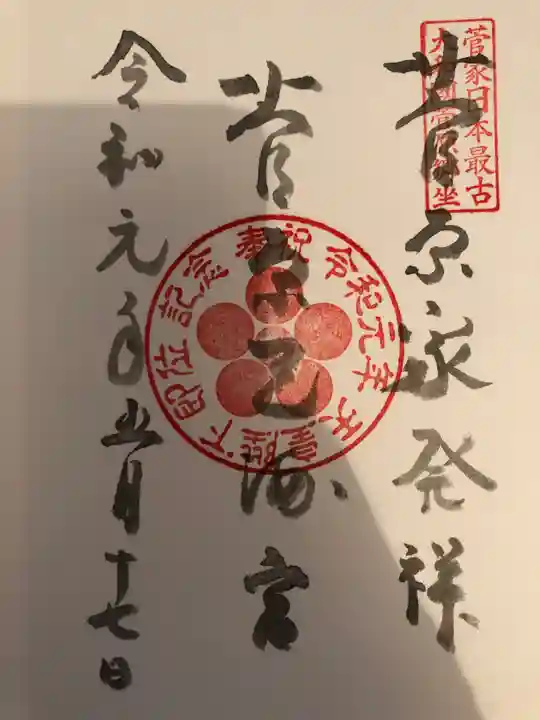 菅家日本最古
大和國菅原郷坐
菅原家発祥
菅原天満宮
奉祝 令和元年 天皇陛下即位 記念
令和元年五月十七日